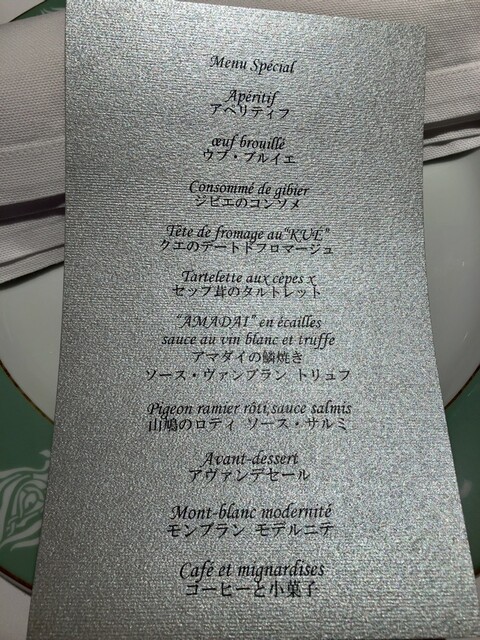 Menu Spécial
Apéritif
アペリティフ
œuf brouillé
ウブ・ブルイエ
Consommé de gibier
ジビエのコンソメ
Tête de fromage au“KUE”
クエのテートドフロマージュ
Tartelette aux cèpes x
セップ茸のタルトレット
“AMADAI” en écailles
sauce au vin blanc et truffe
アマダイの鱗焼き
ソース・ヴァンブラン トリュフ
Pigeon ramier rôti,sauce salmis
山鳩のロティ ソース・サルミ
Avant-dessert
アヴァンデセール
Mont-blanc modernité
モンブラン モデルニテ
Café et mignardises
コーヒーと小菓子